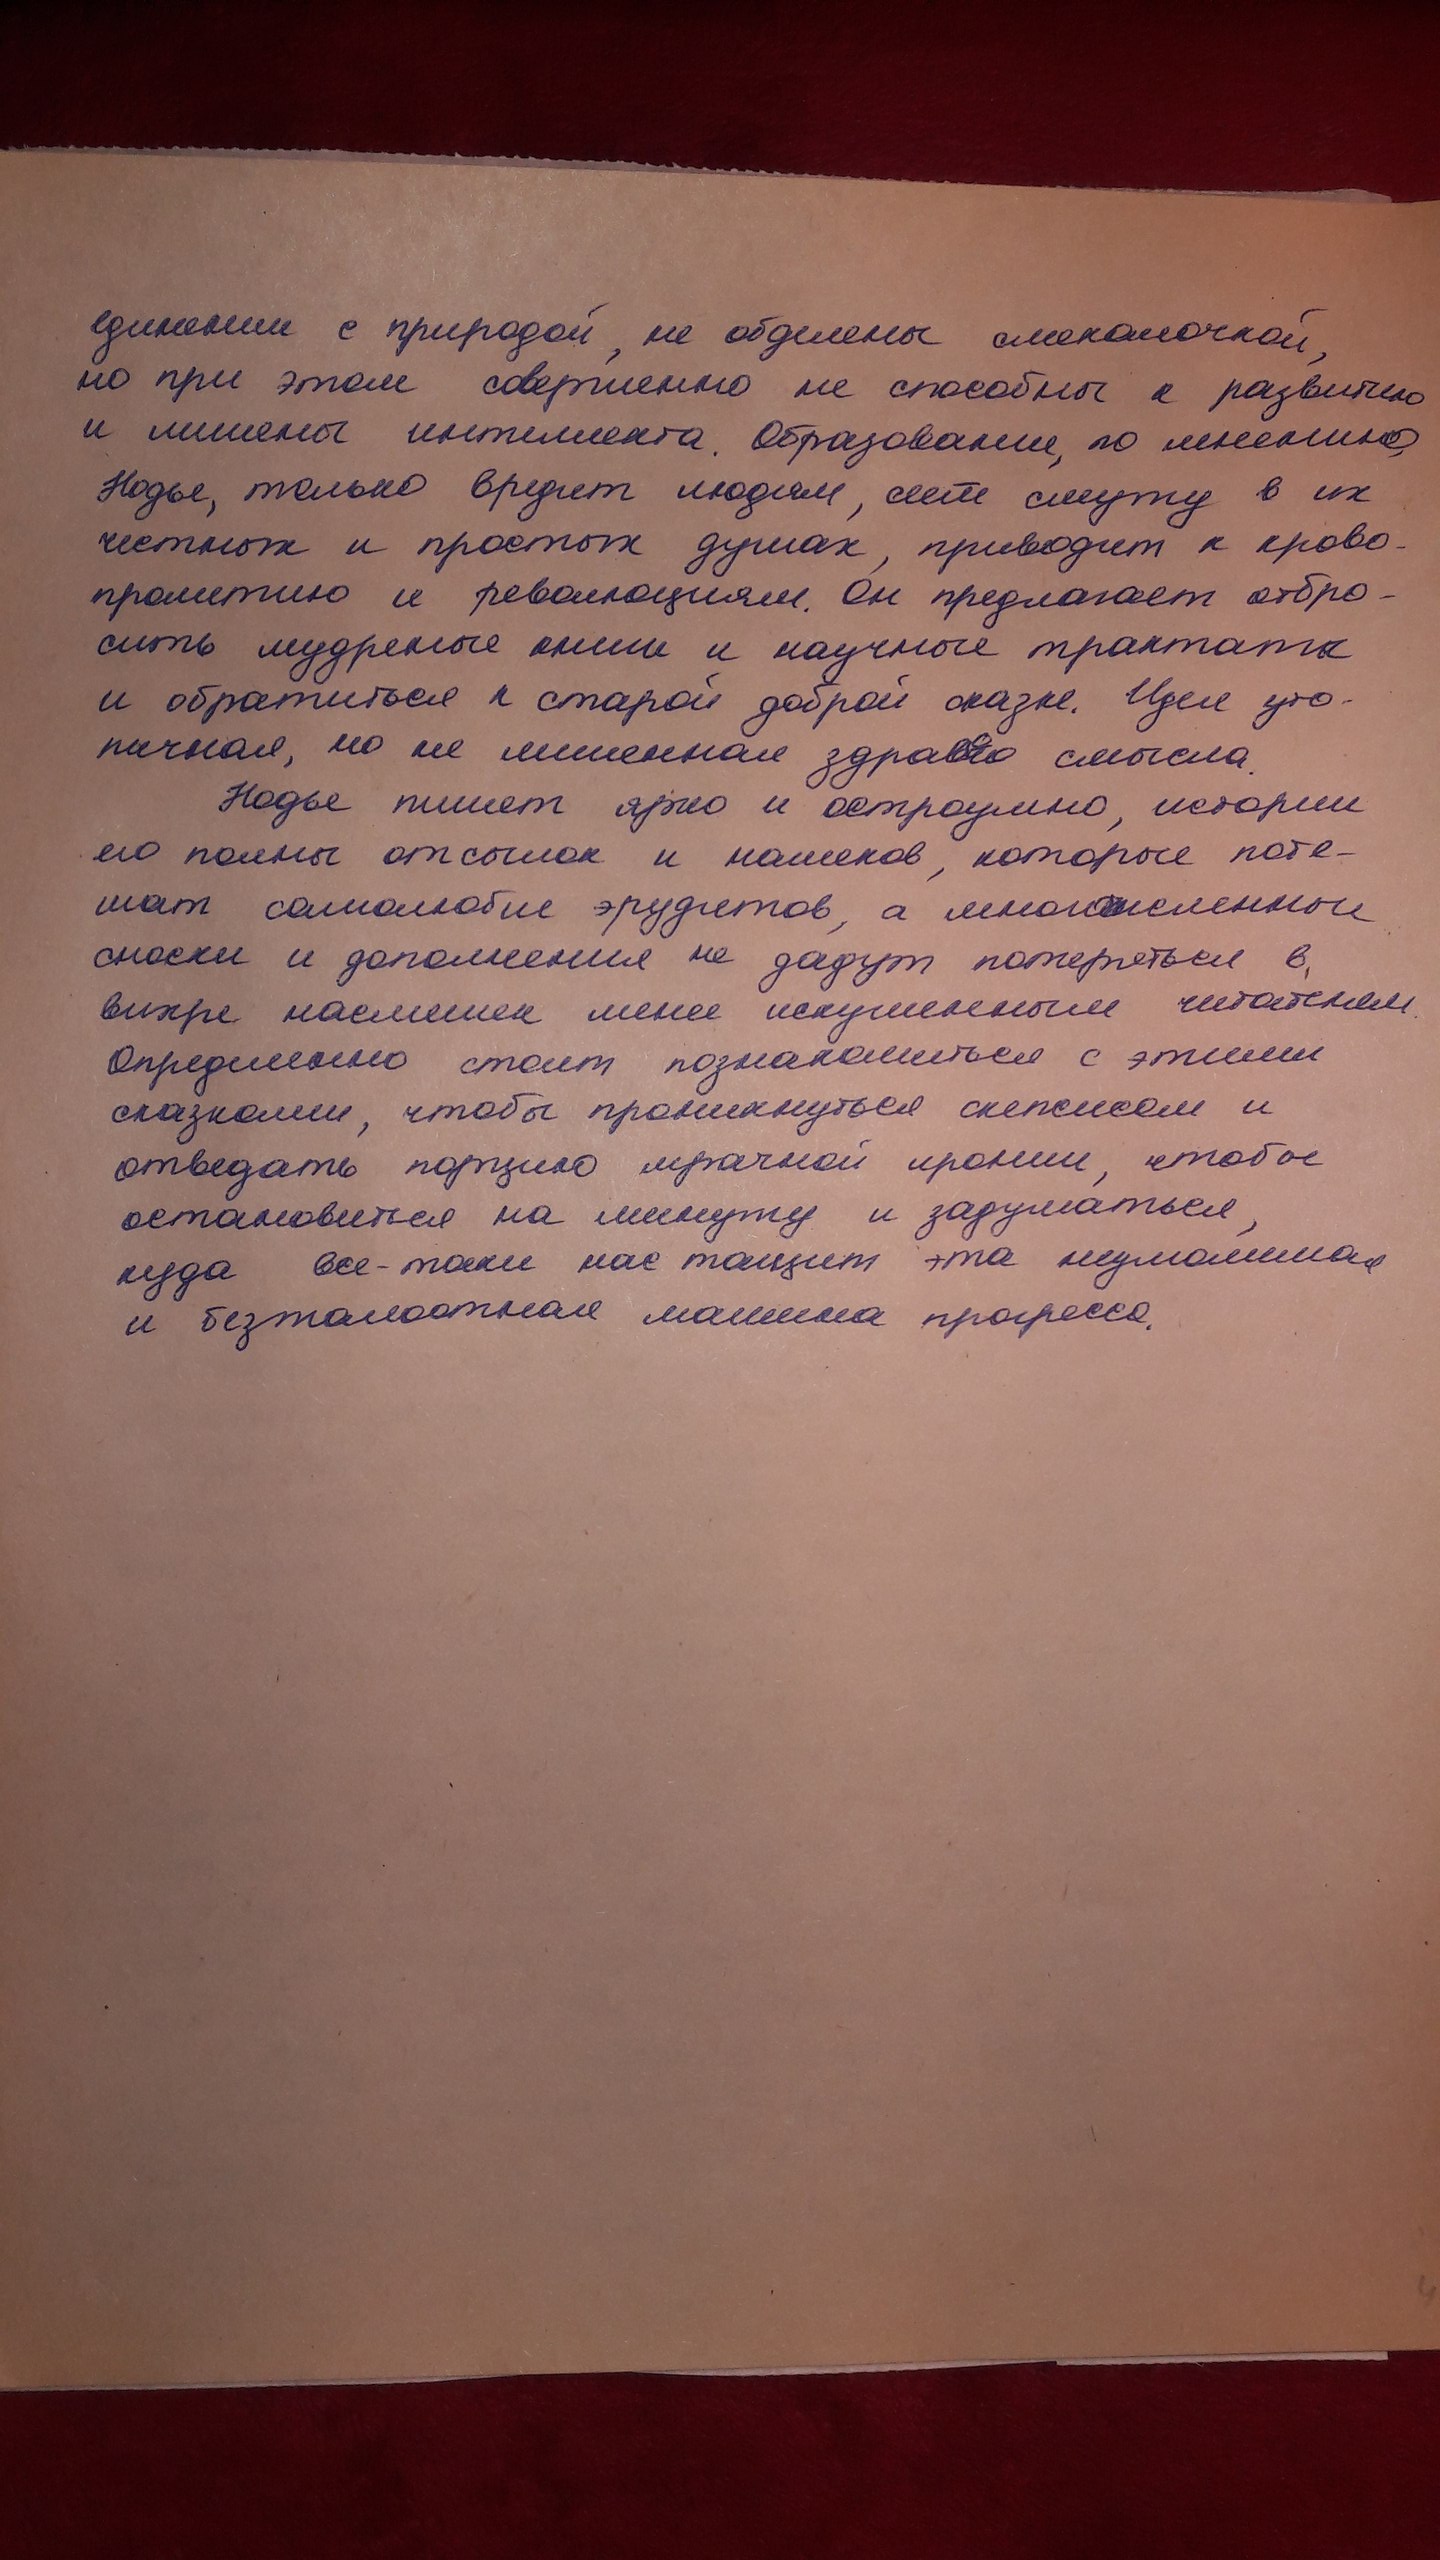 единении с природой, не обделены смекалочкой,
но при этом совершенно не способны к развитию
и лишены интеллекта. Образование, по мнению
Нодье, только вредит людям, сеет смуту в их
честных и простых душах, приводит к крово-
пролитию и революциям. Он предлагает отбро-
сить мудреные книги и научные трактаты
и обратиться к старой доброй сказке. Идея уто-
пичная, но не лишенная здравого смысла.
Нодье пишет ярко и остроумно, истории
его полны отсылок и намеков, которые поте-
шат самолюбие эрудитов, а многочисленные
сноски и дополнения не дадут потеряться в
вихре насмешек менее искушенным читателям.
Определенно стоит познакомиться с этими
сказками, чтобы проникнуться скепсисом и
отведать порцию мрачной иронии, чтобы
остановиться на минуту и задуматься,
куда все-таки нас тащит эта неумолимая
и безжалостная машина прогресса.